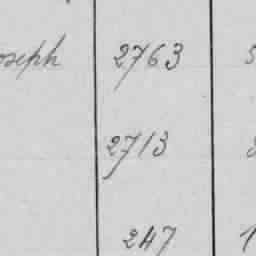 oseph 2763 5
2713
247 1